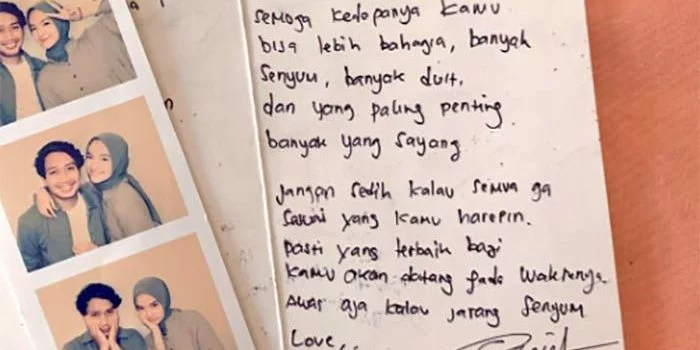 Semoga kedopanya kamu
bisa lebih bahagia, banyak
senyum, banyak duit,
dan yang paling penting
banyak yang sayang
Jangan sedih kalau semua ga
sesuai yang kamu harepin.
pasti yang terbaik bagi
kamu akan datang pada waktunya
awas aja kalau jarang senyum
Love,